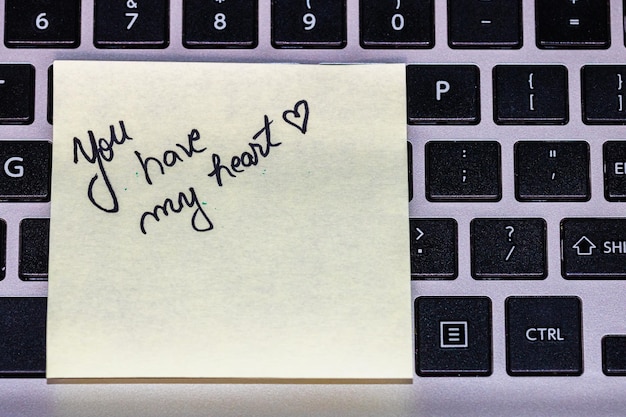 6 7 8 9 0 -
You have my heart ♡
P { [ } ]
G : ; " '
> . ? / ⇧ SHI
CTRL